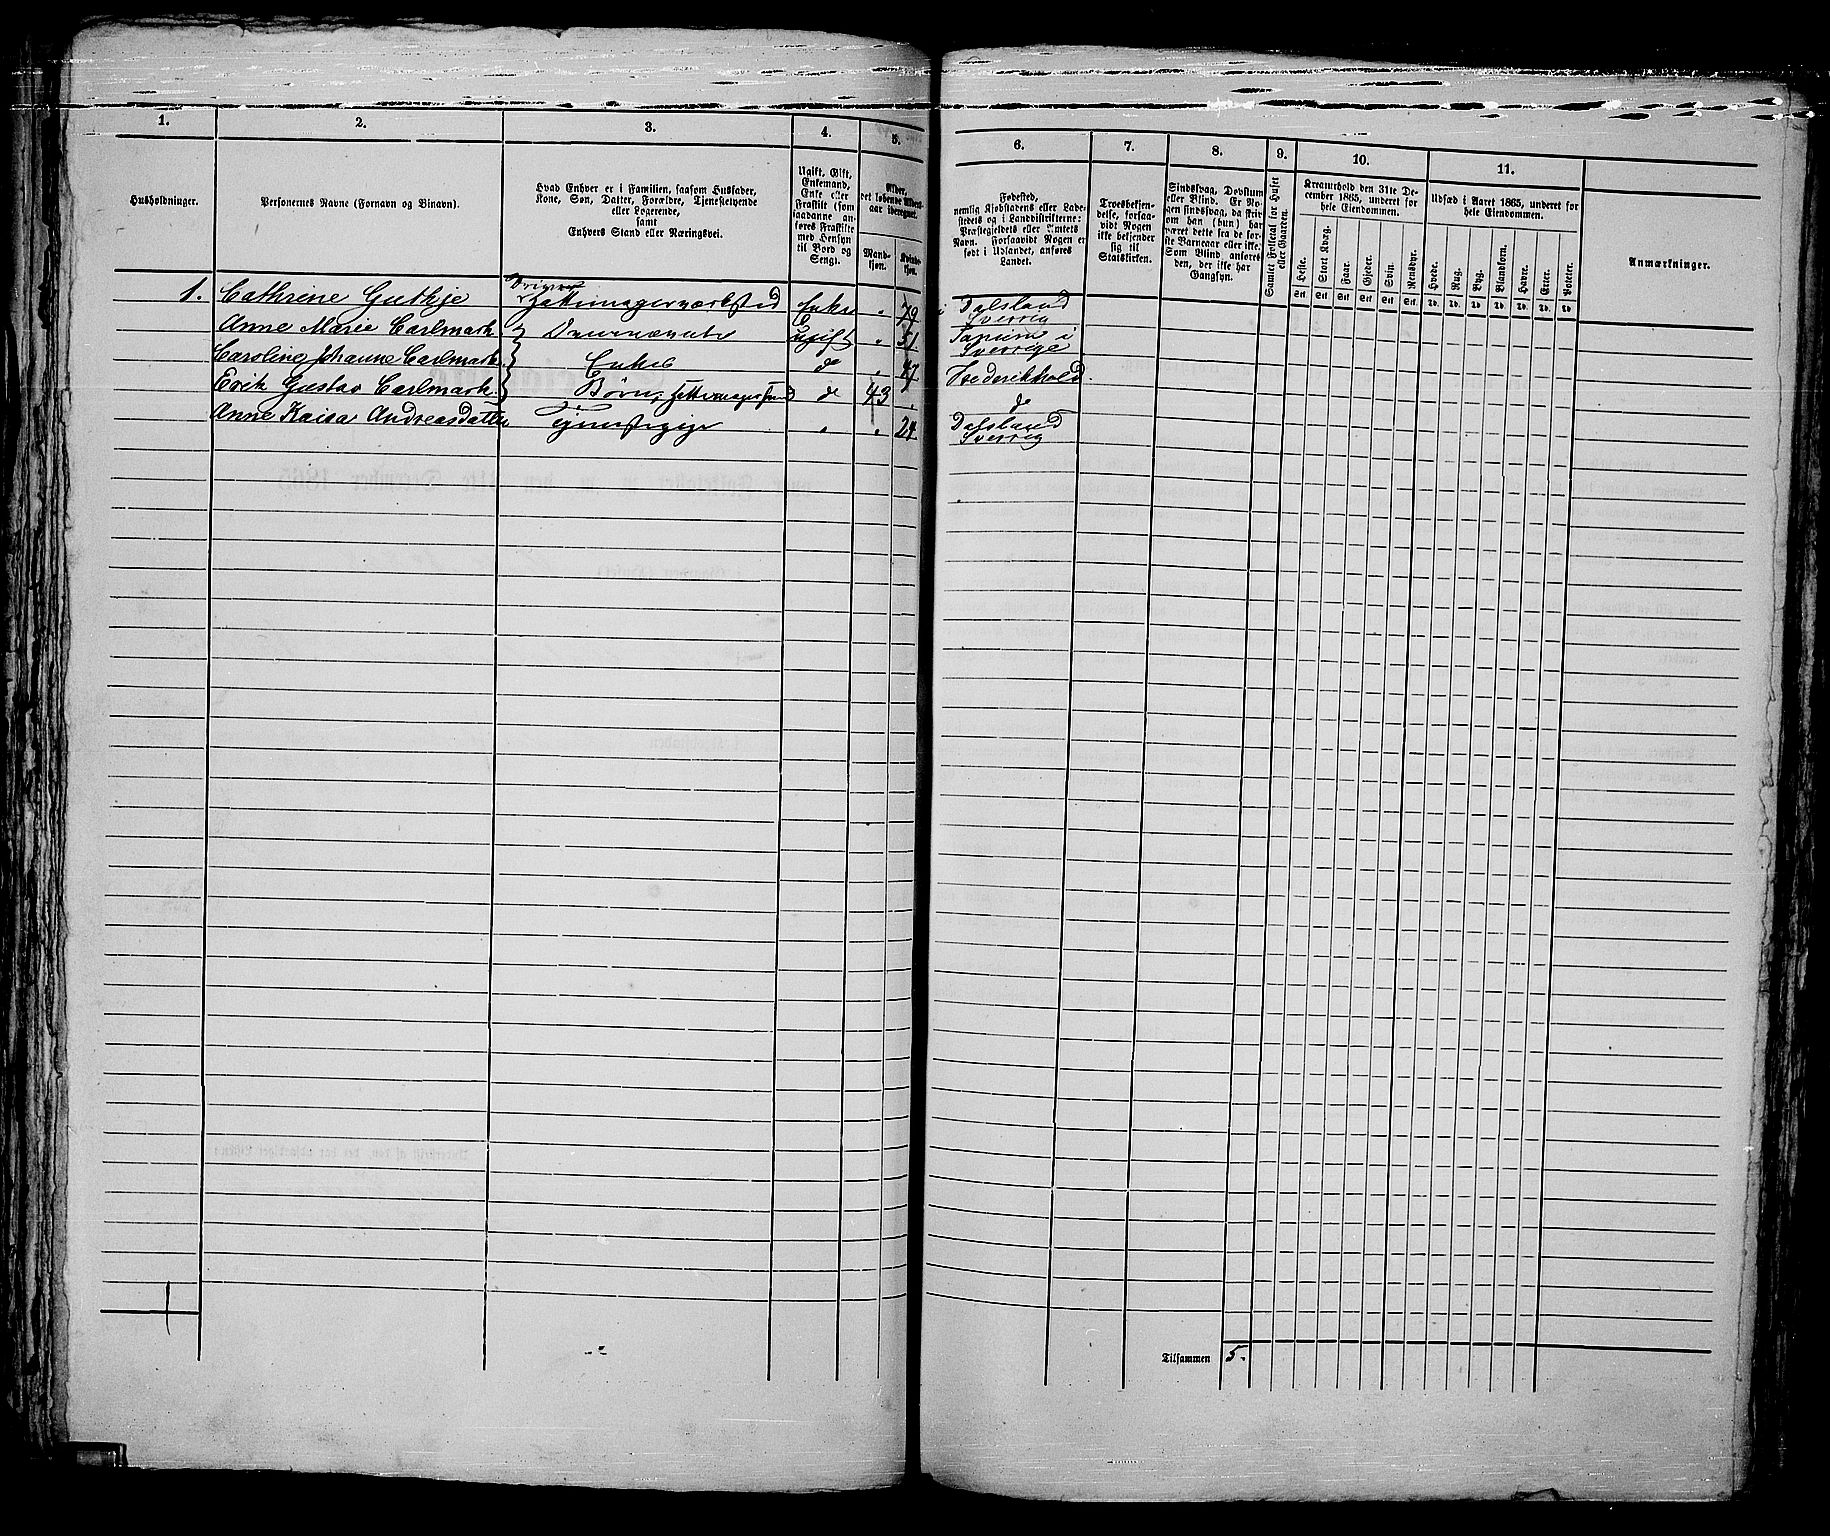 1. 2. 3. 4. 5. 6. 7. 8. 9. 10. 11.
Husholdninger.
Personernes Navne (Fornavn og Binavn).
Hvad Enhver er i Familien, saasom Husfader,
Kone, Søn, Datter, Forældre, Tjenestetyende
eller Logerende,
samt
Enhvers Stand eller Næringsvei.
Ugift, Gift,
Enkemand,
Enke eller
Fraskilt (som
saadanne an-
føres Fraskilte
med Hensyn
til Bord og
Seng).
Alder,
det løbende Alders-
aar iberegnet.
Mand-
kjøn.
Kvinde-
kjøn.
Fødested,
nemlig Kjøbstadens eller Lade-
stedets og i Landdistrikterne:
Præstegjeldets eller Amtets
Navn. Forsaavidt Nogen er
født i Udlandet, anføres
Landet.
Troesbekjen-
delse, forsaa-
vidt Nogen
ikke bekjender
sig til
Statskirken.
Sindssvag, Døvstum
eller Blind. Er No-
gen sindssvag, da skriv
om han (hun) har
været dette fra de før-
ste Barneaar eller ikke.
Som Blind anføres
den, der ikke har
Gangsyn.
Samlet Folketal for Huset
eller Gaarden.
Kreaturhold den 31te De-
cember 1865, underet for
hele Eiendommen.
Heste. Stort Kvæg. Faar. Gjeder. Svin. Rensdyr.
Stk. Stk. Stk. Stk. Stk. Stk.
Udsæd i Aaret 1865, underet for
hele Eiendommen.
Hvede. Rug. Byg. Blandkorn. Havre. Erter. Poteter.
Td. Td. Td. Td. Td. Td. Td.
Anmærkninger.
Driver
1. Cathrine Guthje Hattemagerværksted Enke " 79 Dalsland i Sverrig
Anne Marie Carlmark } Ovennævnte ugift " 51 i Sverrige
Caroline Johanne Carlmark } Enkes do " 47 Frederikshald
Erik Gustav Carlmark } Børn, Hattemagersvend do 43 " do
Anne Kaisa Andreasdatter Tjenestepige " " 24 Dalsland Sverrig
1
Tilsammen 5.